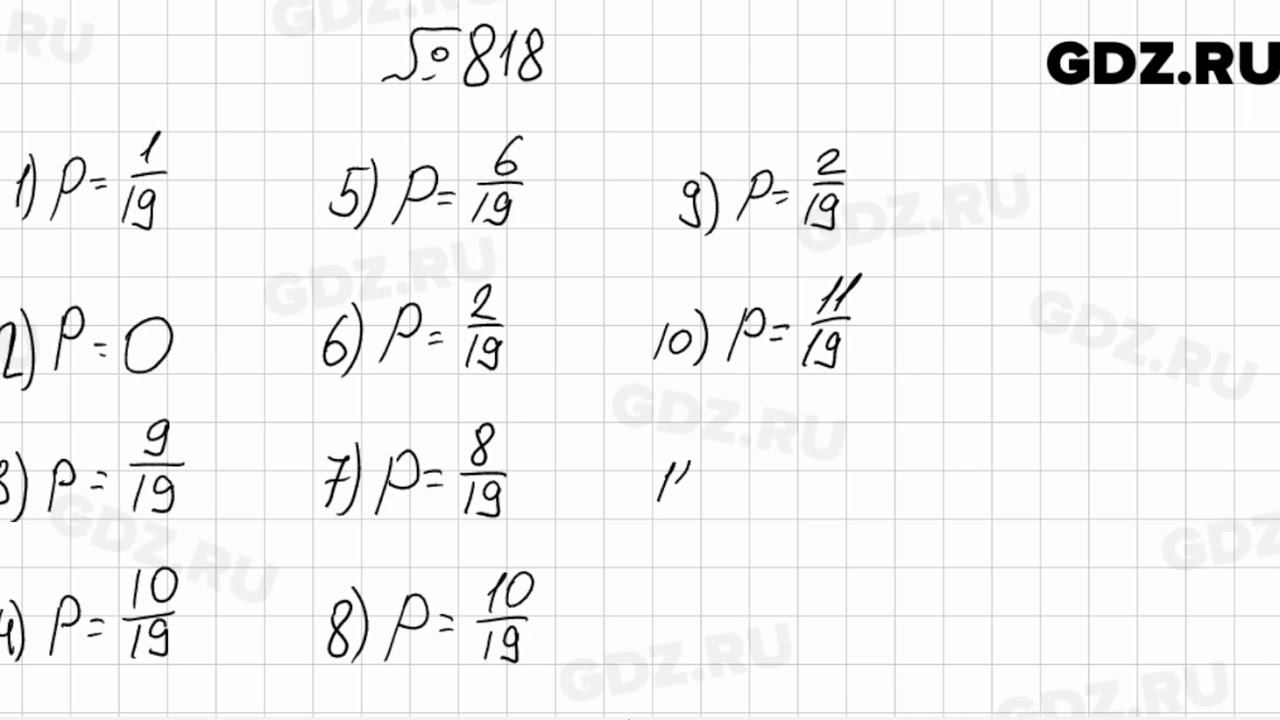 № 818
GDZ.RU
1) P = 1/19
2) P = 0
3) P = 9/19
4) P = 10/19
5) P = 6/19
6) P = 2/19
7) P = 8/19
8) P = 10/19
9) P = 2/19
10) P = 11/19
11
GDZ.RU
GDZ.RU
GDZ.RU
GDZ.RU
GDZ.RU
GDZ.RU
GDZ.RU
GDZ.RU